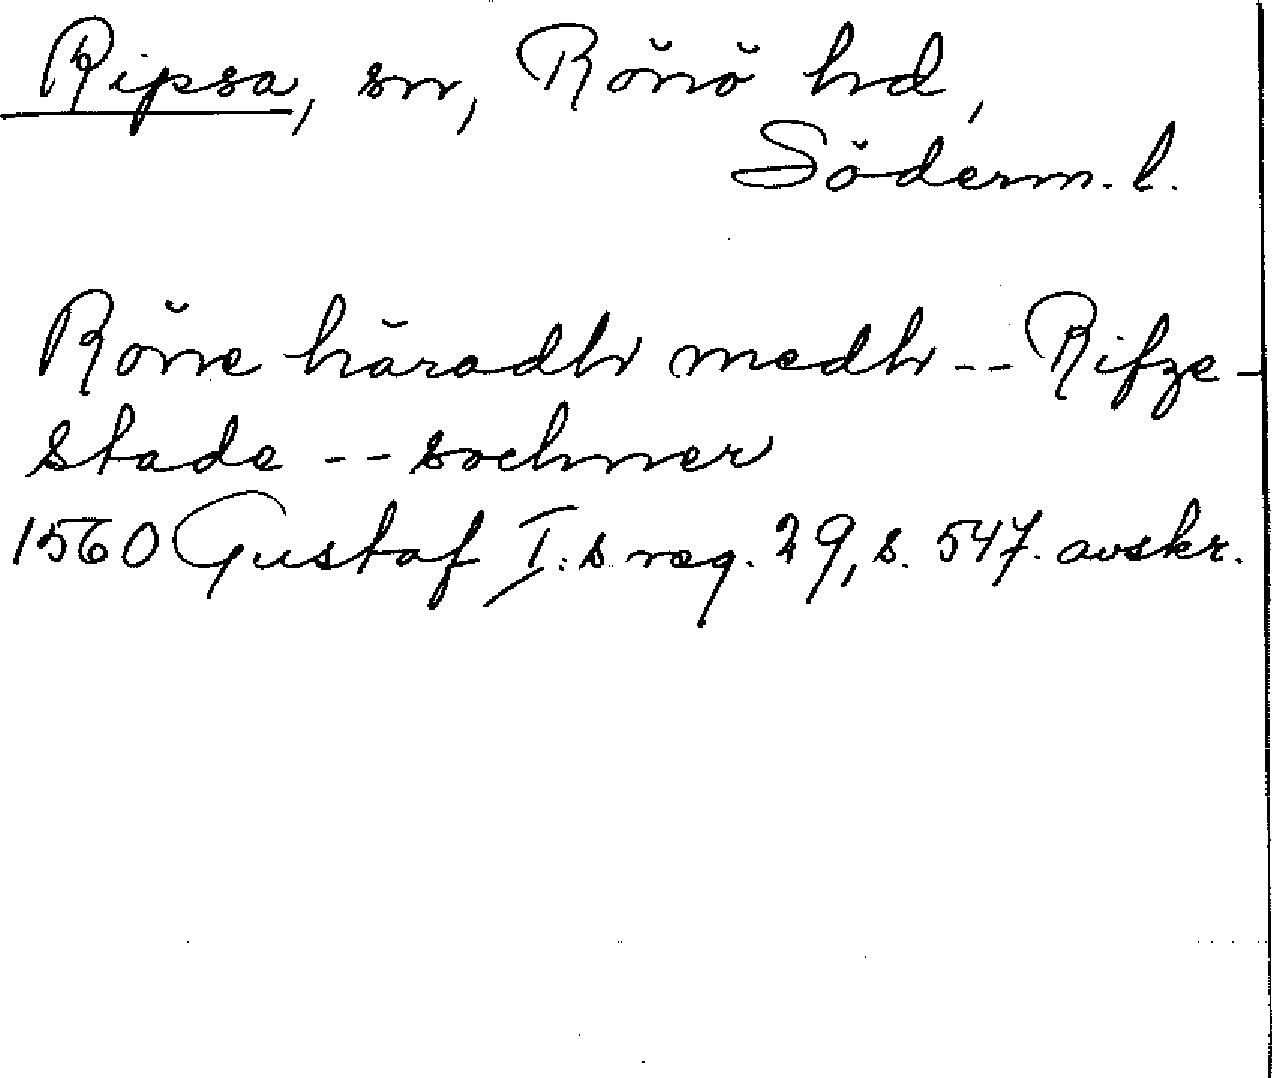 Ripsa, sn, Rönö hd,
Söderm. l.
Röne häradh medh -- Rifze-
stada -- sochner
1560 Gustaf I:s reg. 29, s. 547. avskr.